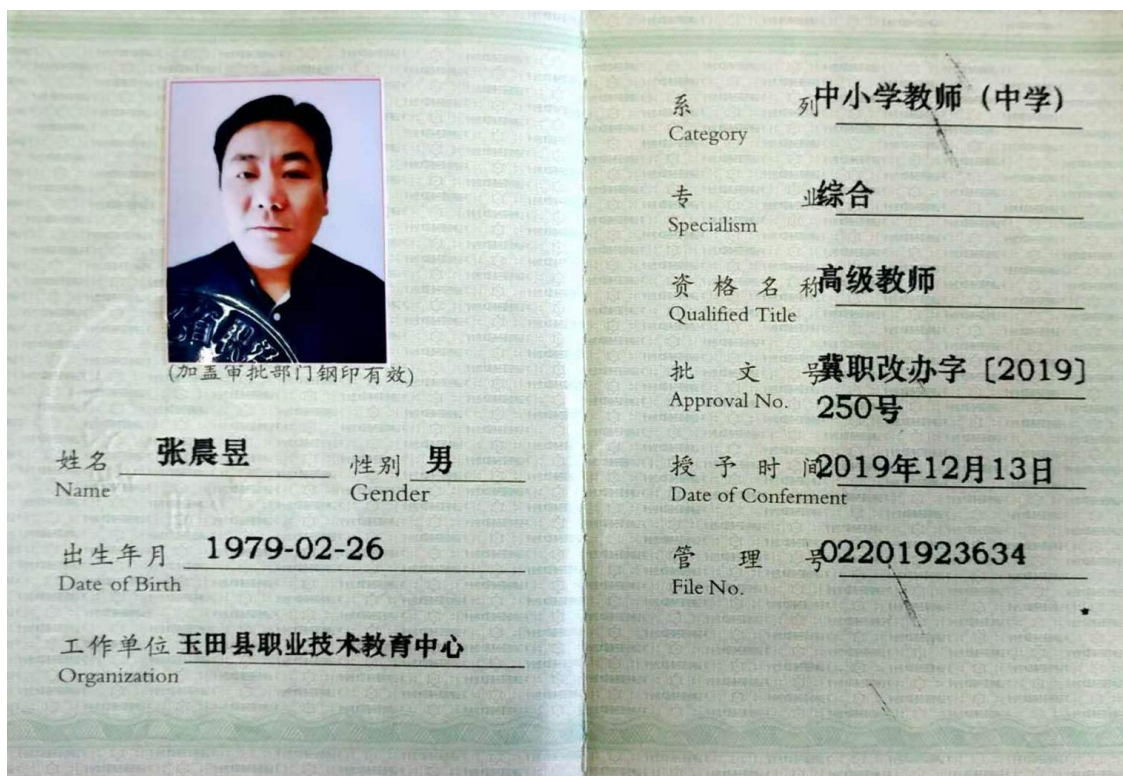 (加盖审批部门钢印有效)
姓名 张晨昱 性别 男
Name Gender
出生年月 1979-02-26
Date of Birth
工作单位 玉田县职业技术教育中心
Organization
系列 中小学教师（中学）
Category
专业 综合
Specialism
资格名称 高级教师
Qualified Title
批文号 冀职改办字〔2019〕
Approval No. 250号
授予时间 2019年12月13日
Date of Conferment
管理号 02201923634
File No.